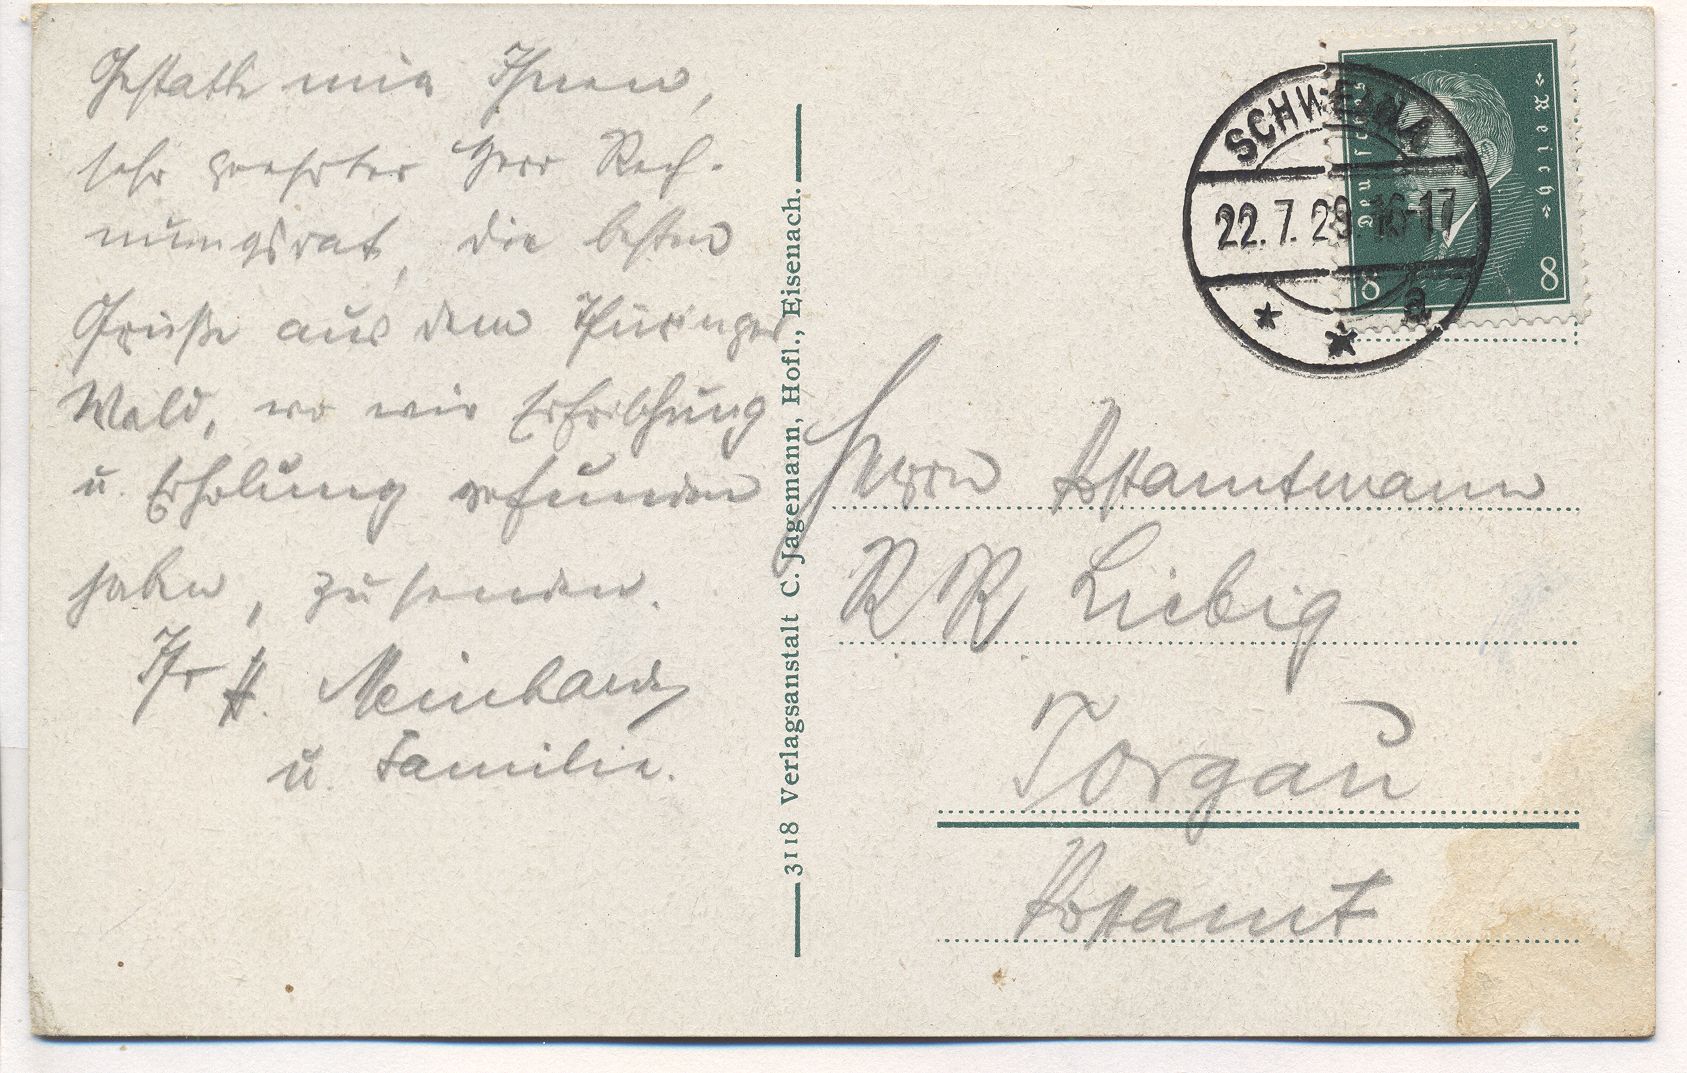 Gestatte mir Ihnen,
sehr geehrter Herr Rech-
nungsrat, die besten
Grüße aus dem Thüringer
Wald, wo wir Erfrischung
u. Erholung gefunden
haben, zu senden.
Ihr H. Meinhardt
u. Familie.
3118 Verlagsanstalt C. Jagemann, Hofl., Eisenach.
SCHWEINA
22.7.29.16-17
* * a
Deutsches
Reich
8 8
Herrn Postamtmann
RR Liebig
Torgau
Postamt